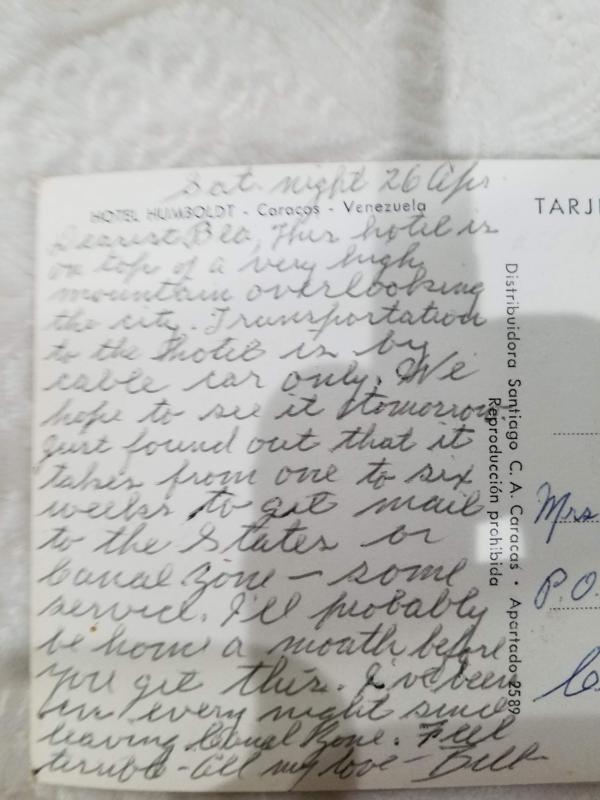 Sat. night 26 Apr
HOTEL HUMBOLDT - Caracas - Venezuela
Dearest Bea, This hotel is
on top of a very high
mountain overlooking
the city. Transportation
to the hotel is by
cable car only. We
hope to see it tomorrow.
Just found out that it
takes from one to six
weeks to get mail
to the States or
Canal Zone - some
service. I'll probably
be home a month before
you get this. I've been
in every night since
leaving Canal Zone. Feel
terrible - All my love - Bill
TARJ
Distribuidora Santiago C. A. Caracas • Apartado 2589
Reproducción prohibida
Mrs
P.O.